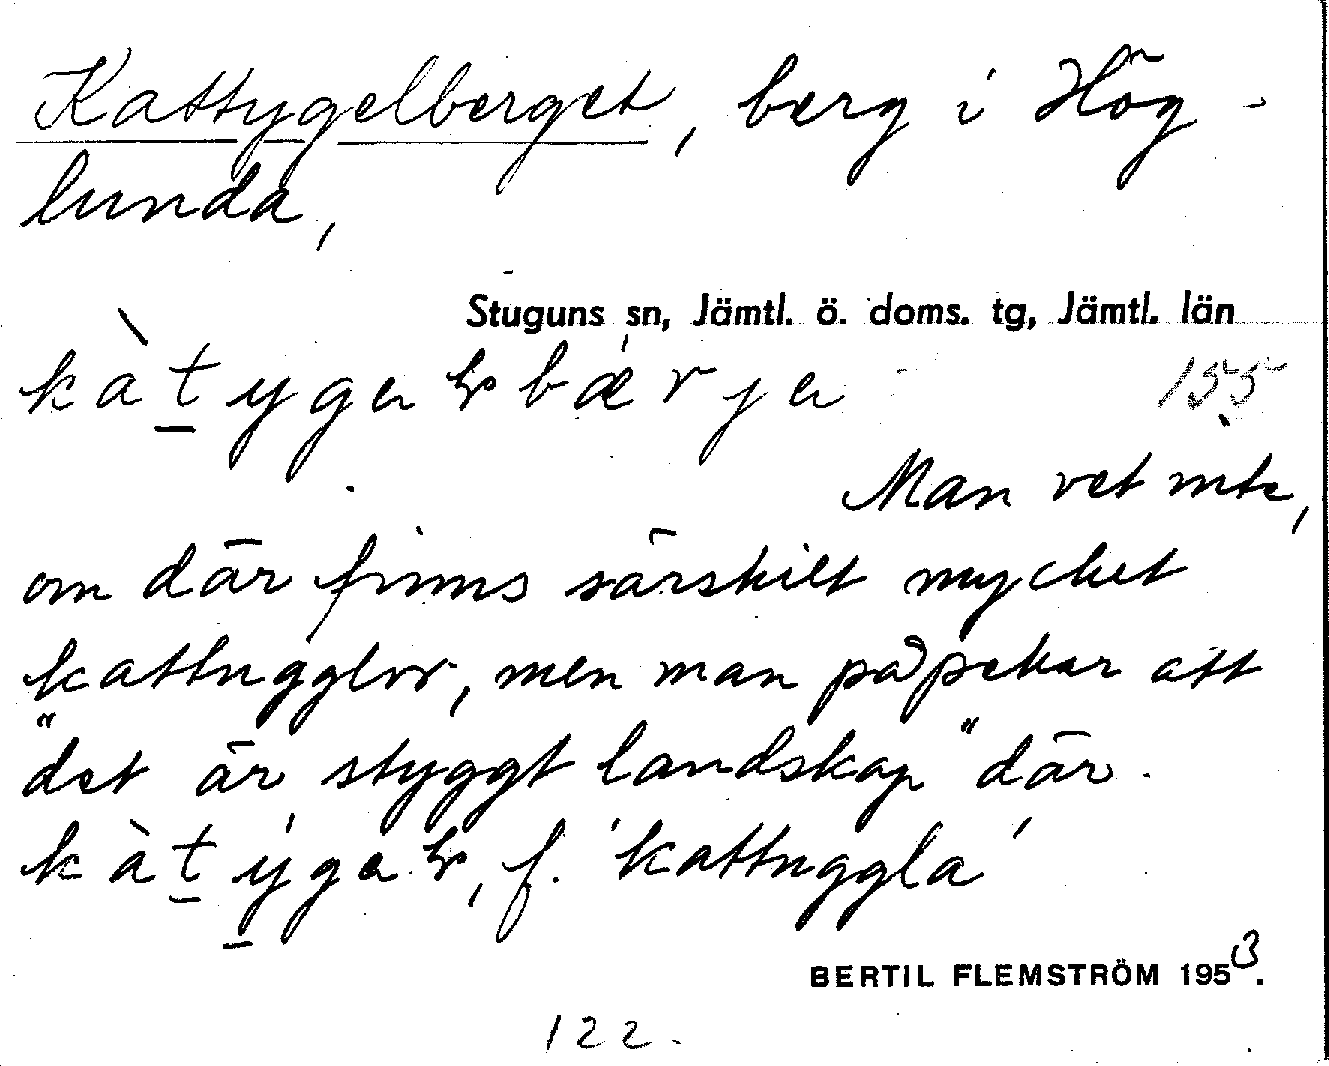 Kattygelberget, berg i Hög-
lunda,
Stuguns sn, Jämtl. ö. doms. tg, Jämtl. län
155
Man vet inte,
om där finns särskilt mycket
kattugglor, men man påpekar att
"det är styggt landskap" där.
f. 'kattuggla'
BERTIL FLEMSTRÖM 1953.
122.